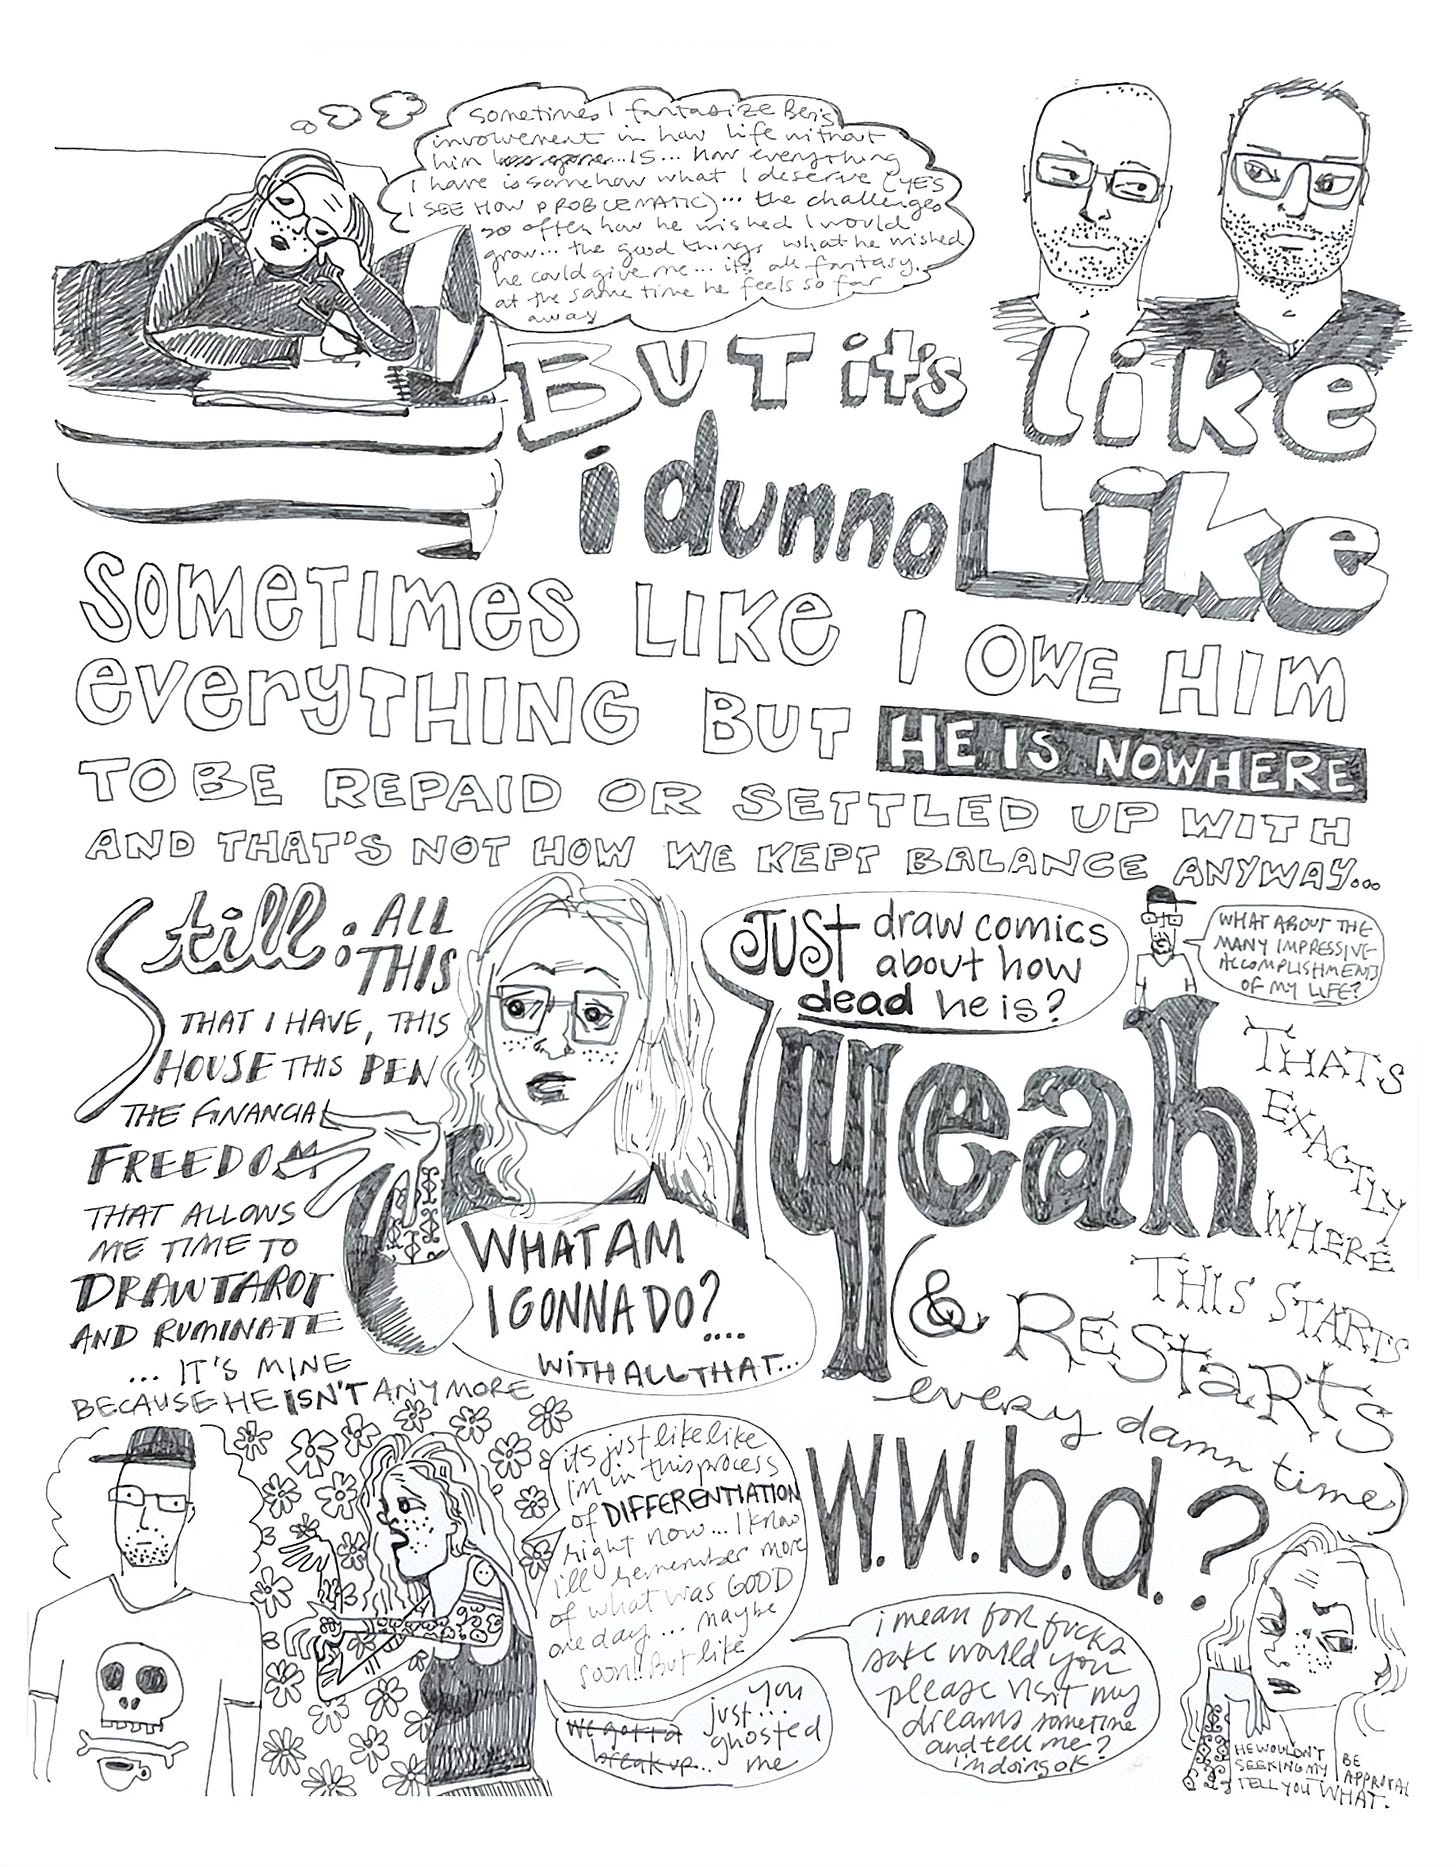 Sometimes I fantasize Ben's
involvement in how life without
him was gone...IS... how everything
I have is somehow what I deserve (YES
I SEE HOW PROBLEMATIC)... the challenges
so often how he wished I would
grow... the good things what he wished
he could give me... its all fantasy.
at the same time he feels so far
away
BUT it's like
i dunno Like
SOMETIMES LIKE I OWE HIM
everyTHING BUT HE IS NOWHERE
TO BE REPAID OR SETTLED UP WITH
AND THAT'S NOT HOW WE KEPT BALANCE ANYWAY...
Still: ALL
THIS
THAT I HAVE, THIS
HOUSE THIS PEN
THE FINANCIAL
FREEDOM
THAT ALLOWS
ME TIME TO
DRAW TAROT
AND RUMINATE
... IT'S MINE
BECAUSE HE ISN'T ANYMORE
WHAT AM
I GONNA DO?
....
WITH ALL THAT...
JUST draw comics
about how
dead he is?
WHAT ABOUT THE
MANY IMPRESSIVE
ACCOMPLISHMENTS
OF MY LIFE?
Yeah
THAT'S
EXACTLY
WHERE
THIS STARTS
(& REStaRTS
every damn time)
it's just like like
I'm in this process
of DIFFERENTIATION
right now... I know
i'll remember more
of what was GOOD
one day.... maybe
soon!! But like
We gotta
break up...
you
just...
ghosted
me
W.W.b.d.?
i mean for fucks
sake would you
please visit my
dreams sometime
and tell me?
i'm doing ok
HE WOULDN'T BE
SEEKING MY APPROVAL
TELL YOU WHAT.